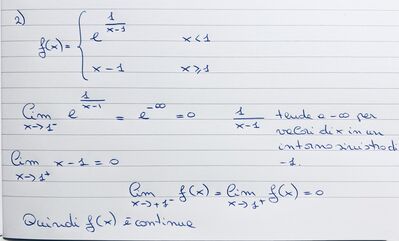 2)
f(x) = { e^(1/(x-1))   x < 1
x - 1   x ⩾ 1
lim x→1⁻ e^(1/(x-1)) = e^(-∞) = 0   1/(x-1) tende a -∞ per
valori di x in un
intorno sinistro di
-1.
lim x→1⁺ x - 1 = 0
lim x→+1⁻ f(x) = lim x→1⁺ f(x) = 0
Quindi f(x) è continua